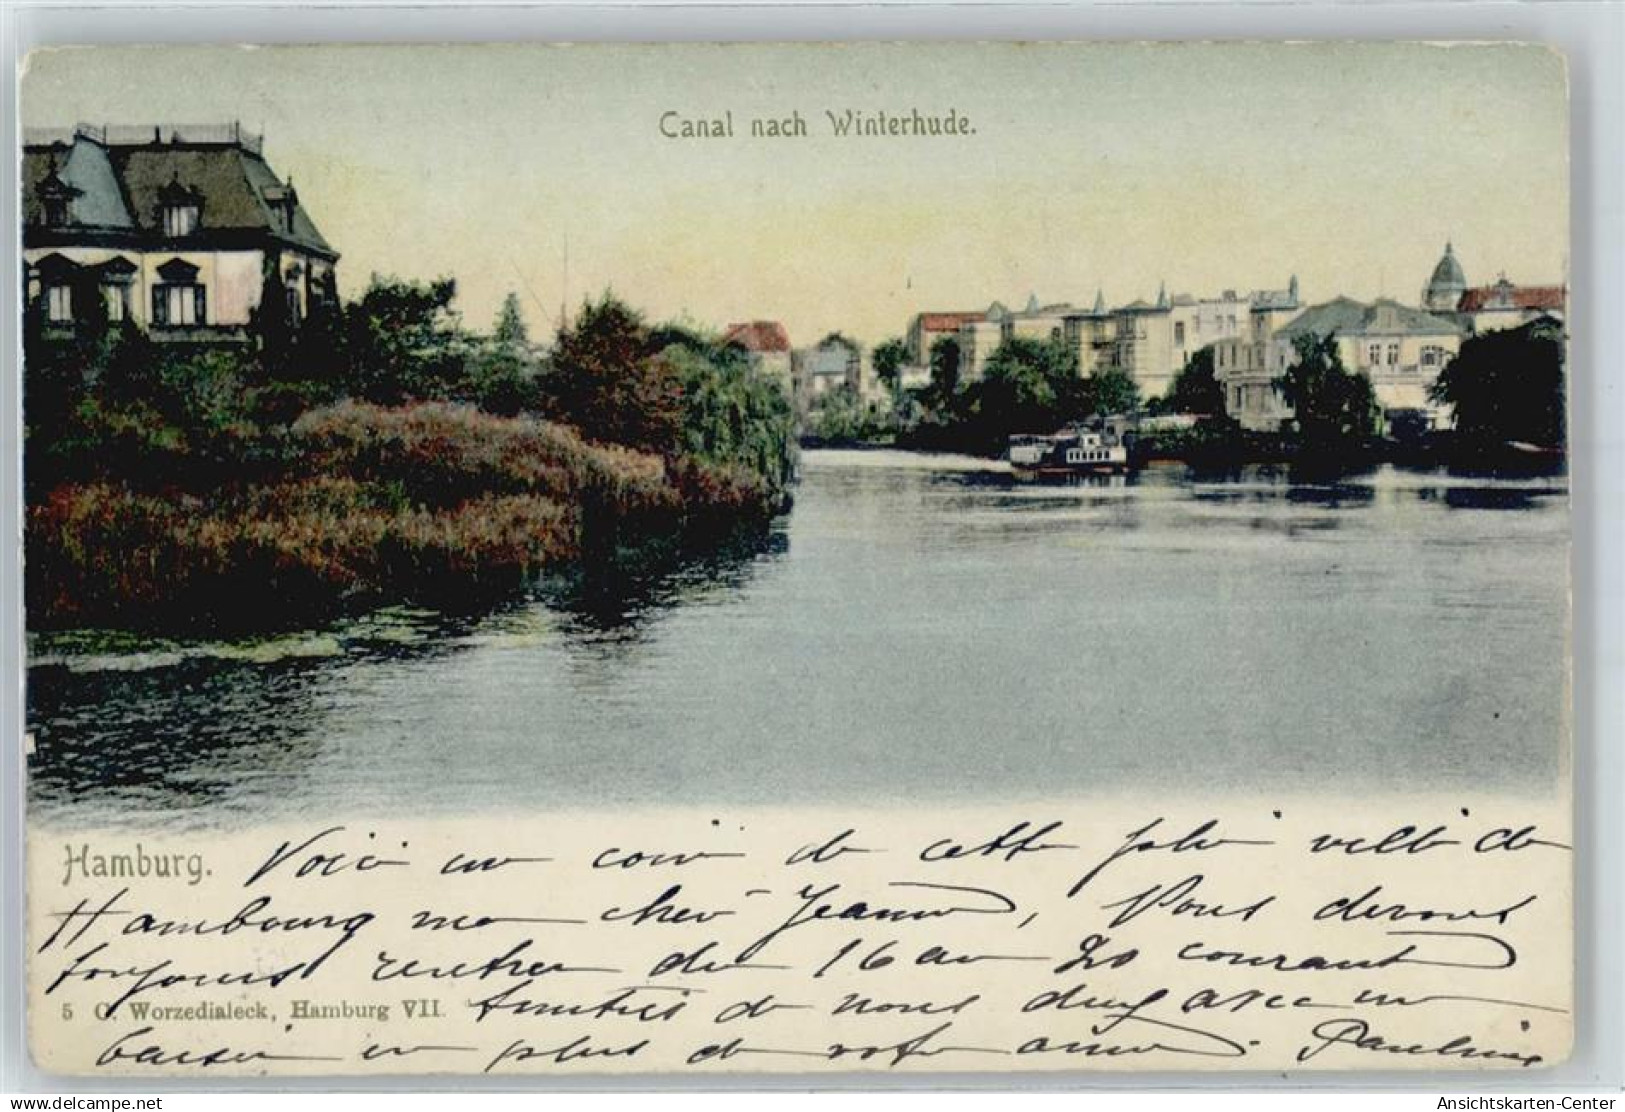 Canal nach Winterhude.
Hamburg. Voici un coin de cette jolie ville de
Hambourg ma chère Jeanne, Nous devons
toujours rentrer du 16 au 20 courant
5 C. Worzedialeck, Hamburg VII. Amitiés de nous deux avec un
baiser en plus de votre amie. Pauline
delcampe.net
Ansichtskarten-Center